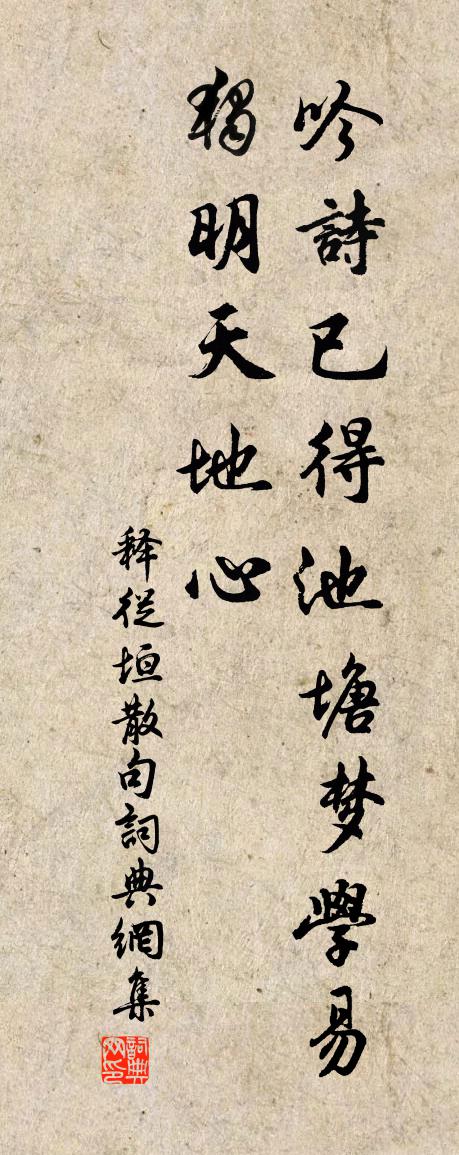 吟詩已得池塘梦學易
獨明天地心
释從垣散句詞典網集
詞典网印